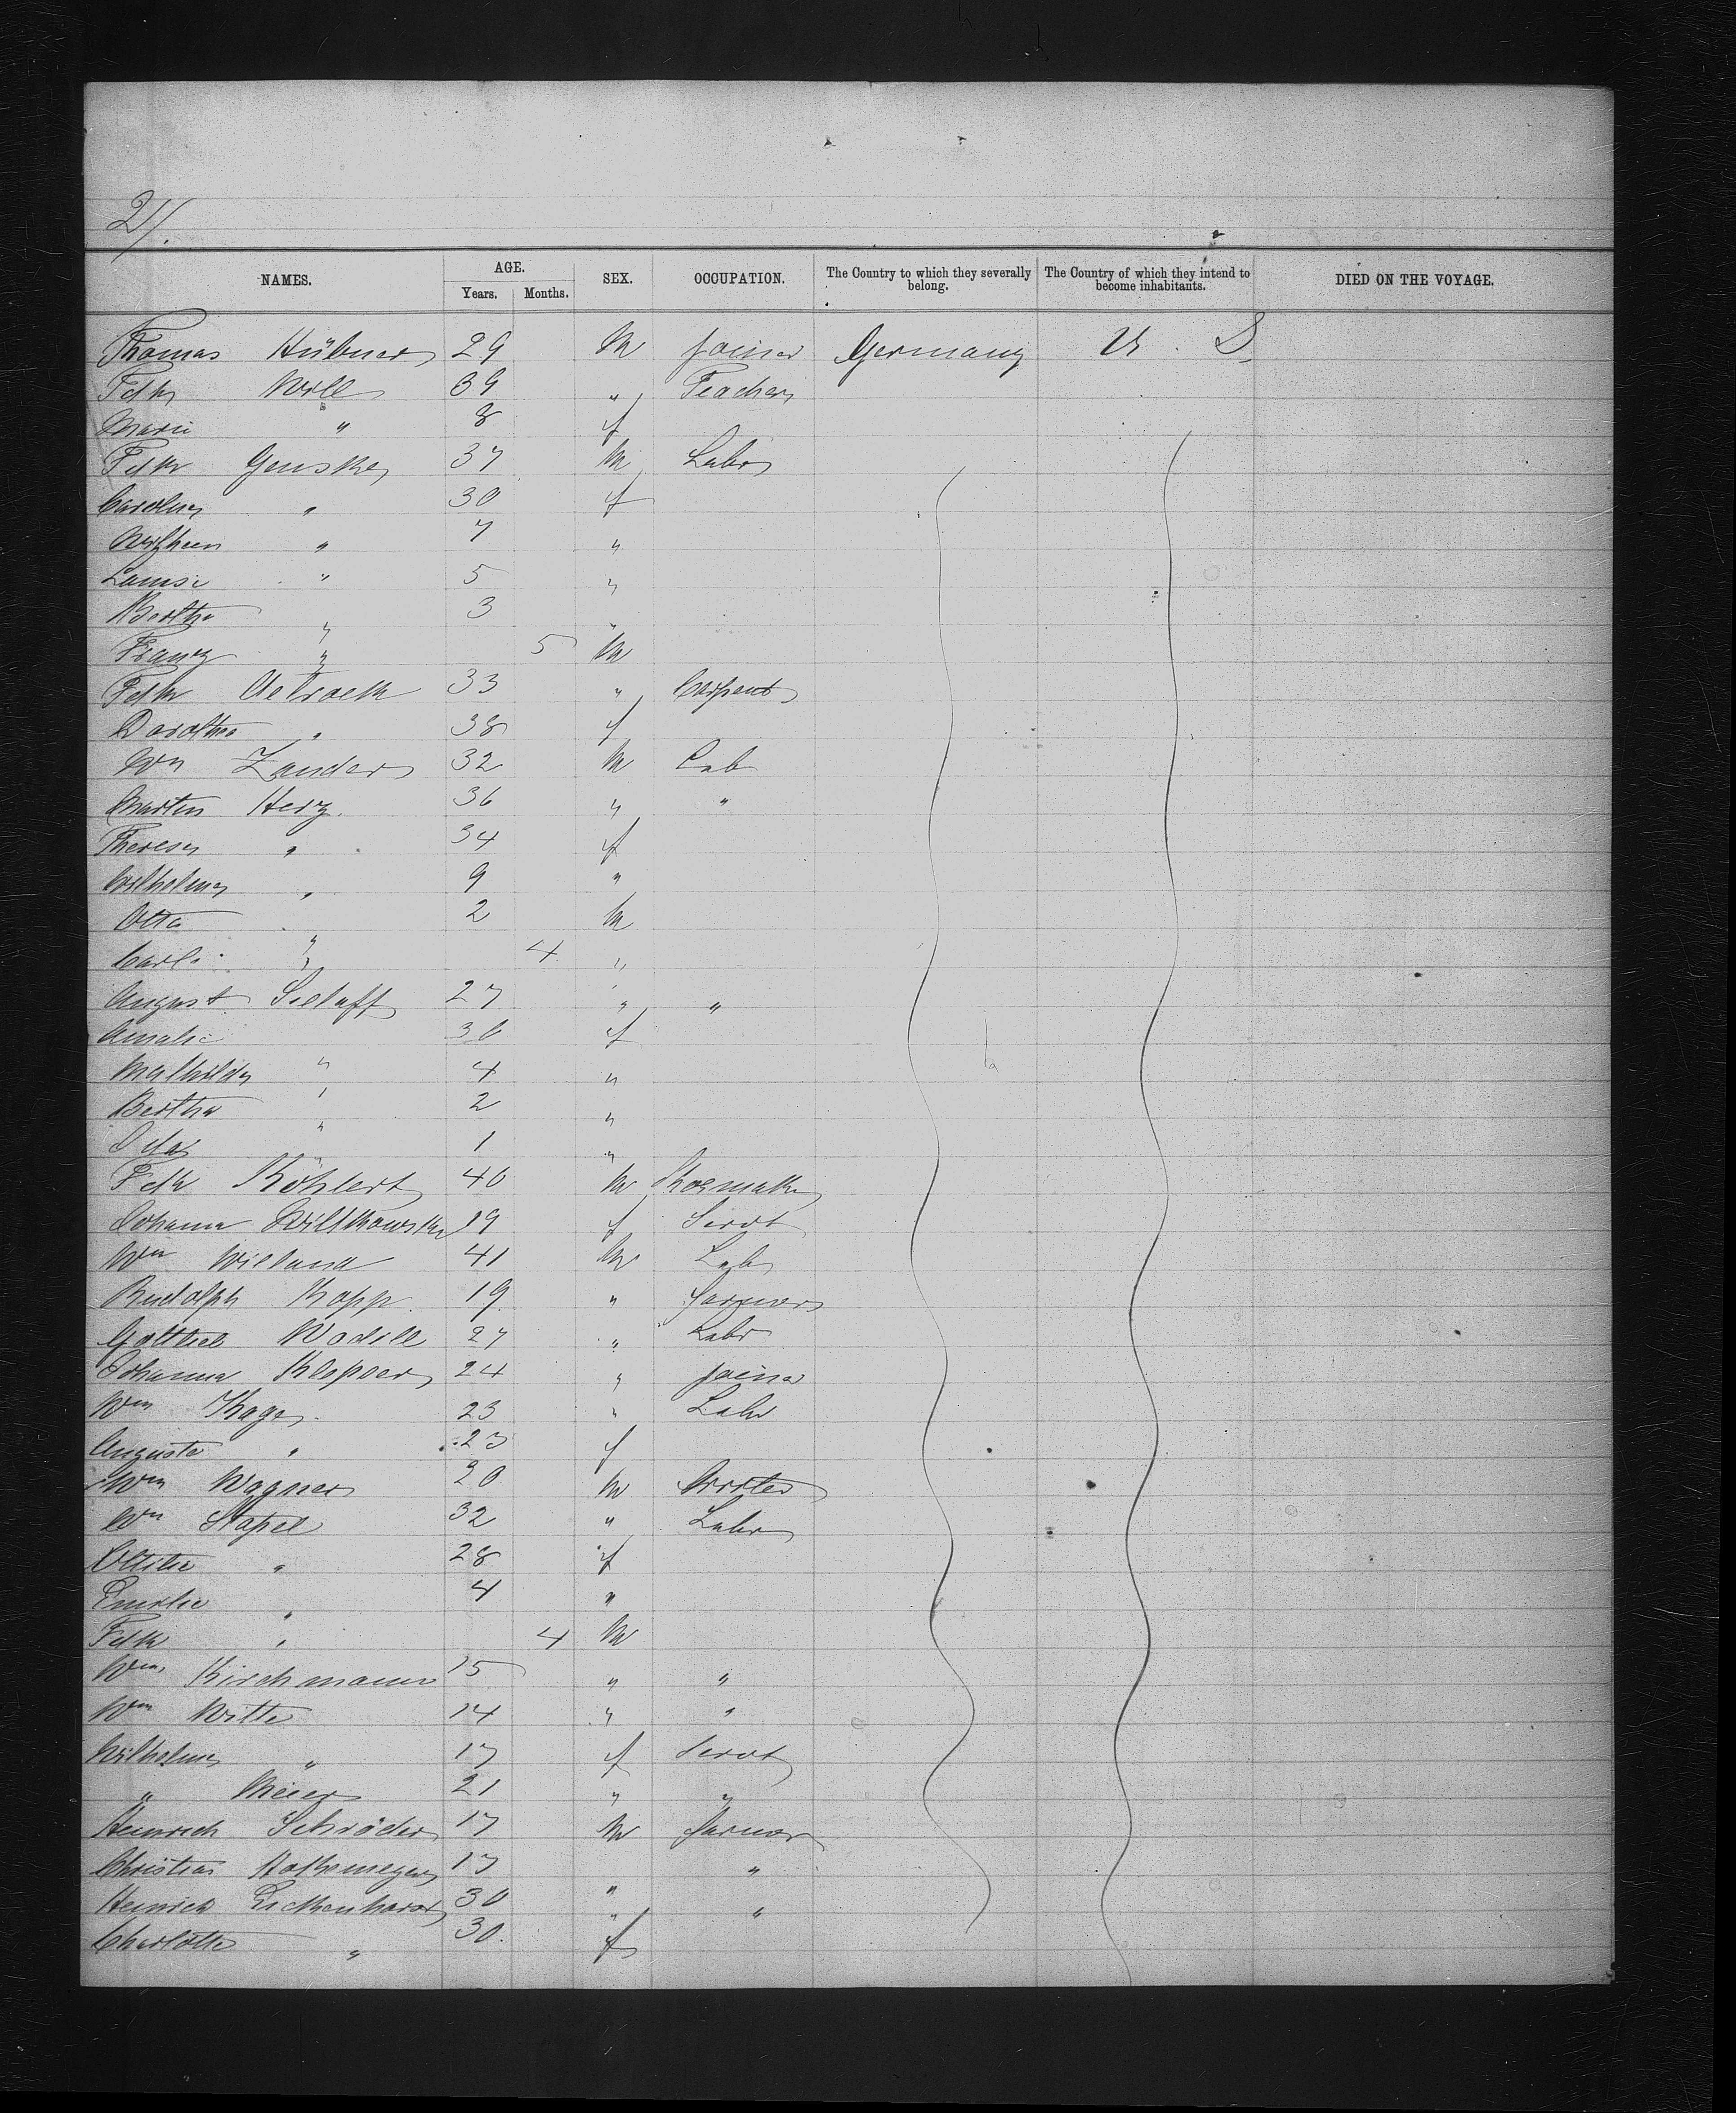 2/.
NAMES. AGE. SEX. OCCUPATION. The Country to which they severally belong. The Country of which they intend to become inhabitants. DIED ON THE VOYAGE.
Years. Months.
Thomas Hübner 29 M Joiner Germany U. S.
Fdk Will 39 " Teacher
Marie " 8 f
Fdk Genske 37 M Labr
Caroline " 30 f
" 7 "
Louise " 5 "
Bertha " 3 "
Franz " 5 M
Fdk 33 " Carpent
Dorothea " 38 f
Wm Zander 32 M Lab
Martin Herz 36 " "
Therese " 34 f
Wilhelmine " 9 "
Otto " 2 M
Carl " 4 "
August Sielaff 27 " "
Amalie 30 f
Mathilde " 4 "
Bertha " 2 "
Ida " 1 "
Fdk Köhlert 40 M Shoemaker
Johanna 19 f Servt
Wm Wieland 41 M Lab
Rudolph Kopp 19 " Farmer
Gottlieb Wodill 27 " Labr
Johanna 24 " Joiner
Wm Hage 23 " Labr
Auguste " 23 f
Wm Wagner 20 M
Wm Stapel 32 " Labr
Ottilie " 28 f
Emilie " 4 "
Fdk " 4 M
Wm Kirchmann 15 " "
Wm Witte 14 " "
Wilhelmine " 17 f Servt
" Meier 21 " "
Heinrich Schröder 17 M Farmer
Christian 17 " "
Heinrich 30 " "
Charlotte " 30. f